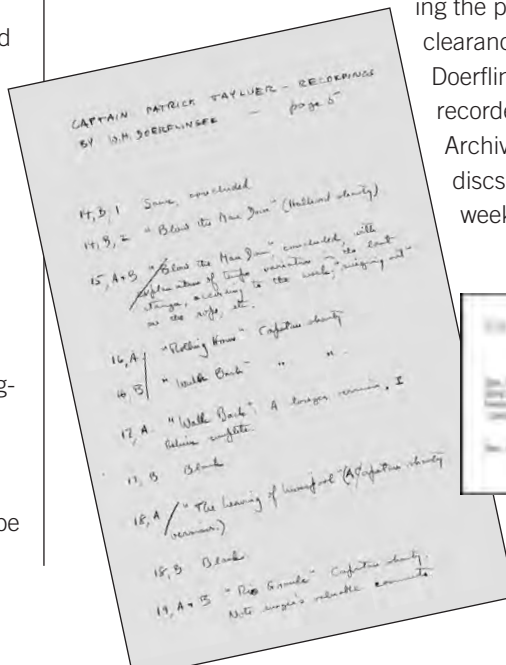 ing the p
clearanc
Doerflin
recorde
Archiv
discs
week
d
g-
be
CAPTAIN PATRICK TAYLUER – RECORDINGS
BY W.H. DOERFLINGER – page 5
14, B, 1 Same, concluded
14, B, 2 "Blow the Man Down" (Halliard shanty)
15, A+B "Blow the Man Down", concluded, with
explanation of tempo variation in the last
stanza, according to the work, "singing out"
on the rope, etc.
16, A "Rolling Home" Capstan shanty
16, B "Walk Back" " "
17, A "Walk Back": A longer version, I
believe complete.
17, B Blank
18, A "The Leaving of Liverpool" (A Capstan shanty
version.)
18, B Blank
19, A + B "Rio Grande" Capstan shanty.
Note singer's valuable comments